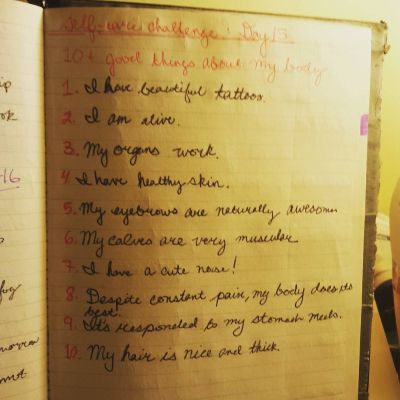 ip
ok
16
fog
morrow
mot
Self-care challenge: Day 13
10+ good things about my body
1. I have beautiful tattoos.
2. I am alive.
3. My organs work.
4. I have healthy skin.
5. My eyebrows are naturally awesome
6. My calves are very muscular
7. I have a cute nose!
8. Despite constant pain, my body does its
best!
9. It's responded to my stomach meds.
10. My hair is nice and thick.